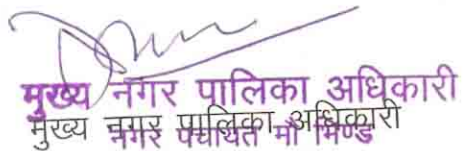 मुख्य नगर पालिका अधिकारी
मुख्य नगर पालिका अधिकारी
नगर पंचायत मौ भिण्ड